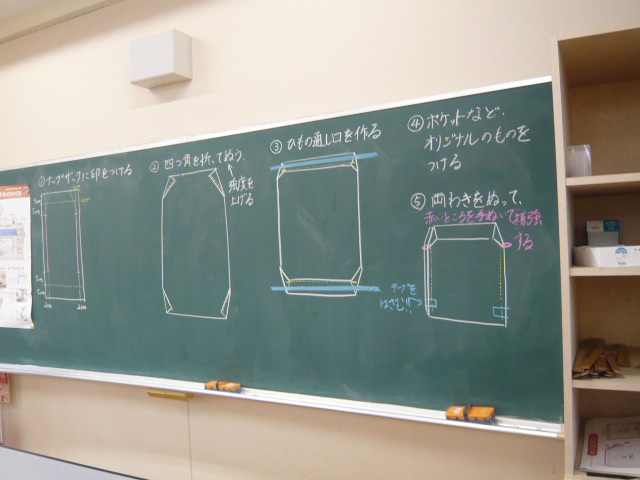 ①ナップザックに印をつける
②四つ角を折ってぬう。
強度を
上げる
③ひもの通し口を作る
④ポケットなど、
オリジナルのものを
つける
⑤両わきをぬって、
赤いところを手ぬいで補強
する
テープを
はさむ!!
2cm
2cm